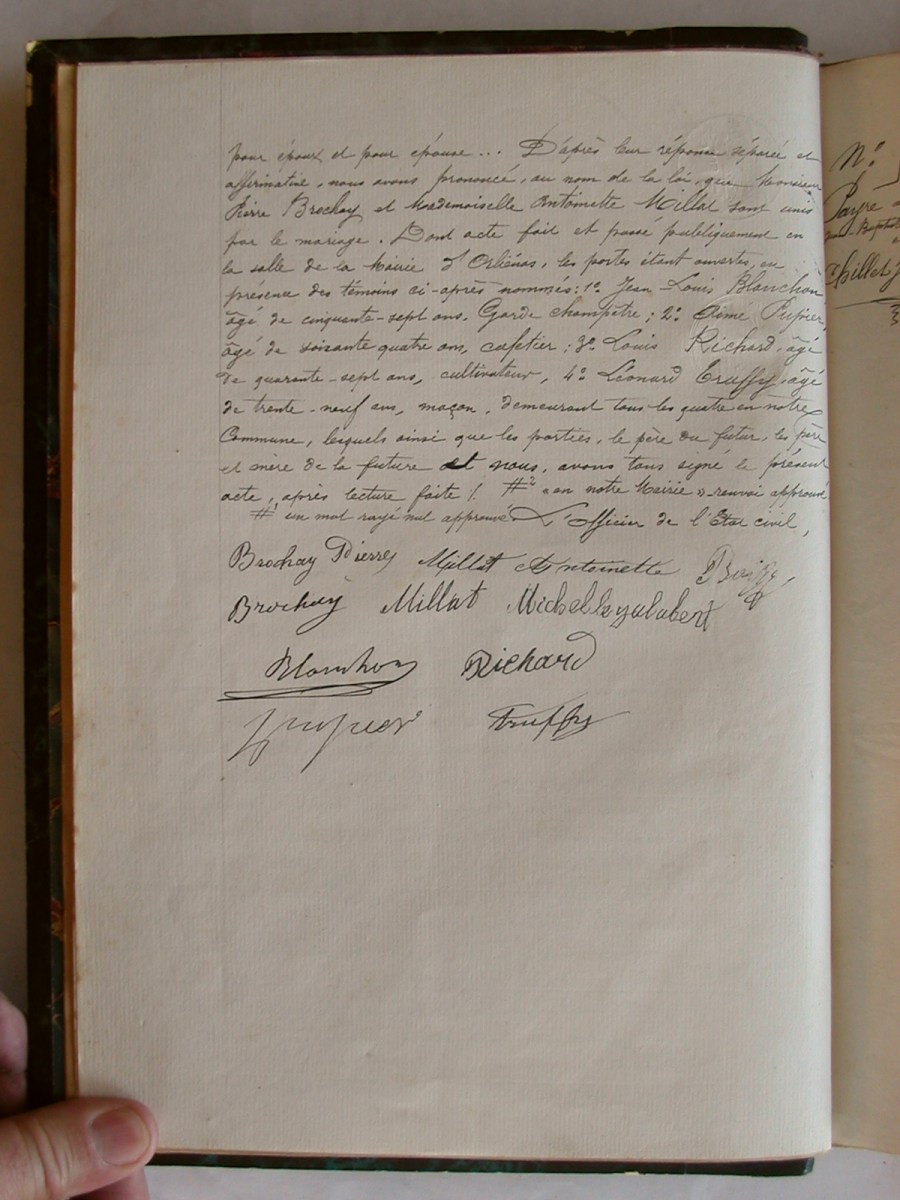 pour époux et pour épouse... D'après leur réponse séparée et
affirmative, nous avons prononcé, au nom de la loi, que Monsieur
Pierre Brochay et Mademoiselle Antoinette Millat sont unis
par le mariage. Dont acte fait et passé publiquement en
la salle de la Mairie d'Orliénas, les portes étant ouvertes, en
présence des témoins ci-après nommés: 1o Jean-Louis Blanchon
âgé de cinquante-sept ans, Garde champêtre; 2o Aimé Pupier,
âgé de soixante quatre ans, cafetier; 3o Louis Richard, âgé
de quarante-sept ans, cultivateur, 4o Léonard Truffy, âgé
de trente-neuf ans, maçon, demeurant tous les quatre en notre
Commune, lesquels ainsi que les parties, le père du futur, les père
et mère de la future et nous, avons tous signé le présent
acte, après lecture faite /. #2 "en notre Mairie" - renvoi approuvé
#1 un mot rayé nul approuvé. L'officier de l'Etat civil,
Brochay Pierre Millat Antoinette
Brochay Millat Michelle Jalabert
Blanchon Richard
Pupier Truffy
No
Payre
Jean-Baptiste
Thillet J